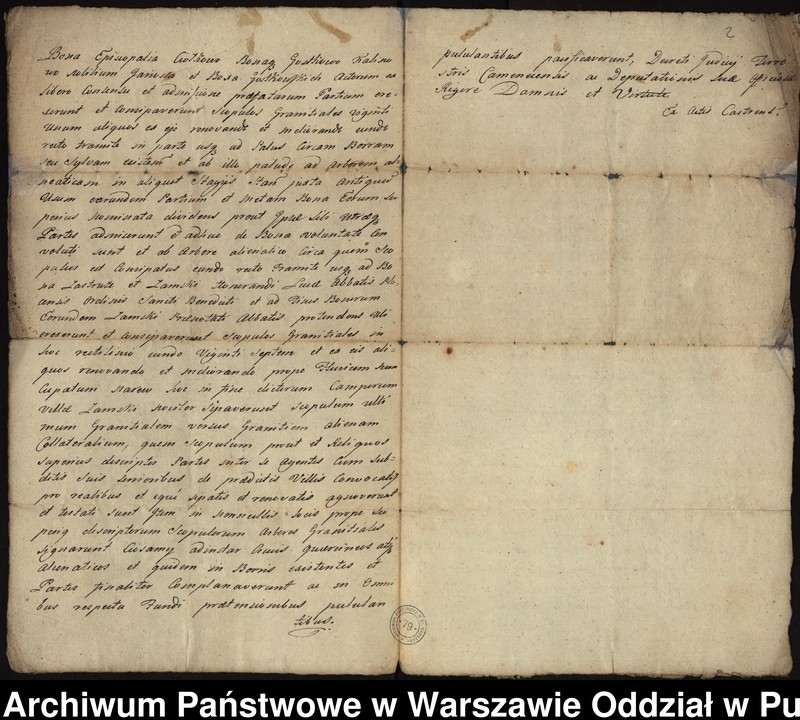 Bona Episcopalia Ciołkowo Bonaq Gostkowo Kalino
wo nobilium Janusza et Bona Gostkowskich Actorum ex
libero Consensu et admissione præfatarum Partium ere-
xerunt et consipaverunt Scopulos Granitiales viginti
Unum aliquos ex eis renovando et meliorando eundo
recto tramite in parte usq ad Palus Circam Borram
seu Sylvam existem et ab illa palude ad Arborem al-
neaticam in aliquot Stagijs Stan juxta Antiquum
Usum earundem Partium et metam Bona Eorum Su
perius nominata dividens prout Ipsæ sibi utræq
Partes admiserunt et adhuc de Bona voluntate Con
voluti sunt et ab Arbore alienatica Circa quem Sco
pulus est Consipatus eundo recto Tramite usq ad Bo
na Lastrute et Zamski Honorandi Luce Abbatis Plo
censis Ordinis Sancti Benedicti et ad Fines Bonorum
Eorundem Zamski Præsentati Abbatis protendens ubi
erexerunt et consipaverunt Scopulos Granitiales in
hoc rectilineo eundo Viginti Septem et ex eis ali-
quos renovando et meliorando prope Fluvium nun
Cupatum Narew hoc in fine dictorum Camporum
Villæ Zamski Sipaverunt Scopulum ulti
mum Granitialem versus Granitiem alienam
Collateralium, quem Scopulum prout et Reliquos
Superius descriptos Partes inter se agentes Cum sub-
ditis Suis senioribus de prædictis Villis Convocatis
pro realibus et equé sipatis et renovatis agnoverunt
et testati sunt Item in nonnullis locis prope Su
periq descriptorum Scopulorum Arbores Granitiales
Signarunt Ciosamy ad instar Crucis quercineos atq
Alienaticos et quidem in Borris existentes et
Partes finaliter Complanaverunt ac in Omni
bus respectu Fundi prætensionibus pululan
tibus.
2
pululantibus pacificaverunt, Decreti Judicij Terre
stris Camenecensis ac Deputationis suæ
Rigore Damnis et Virtute
Ex Actis Castrens.
79
Archiwum Państwowe w Warszawie Oddział w Pu